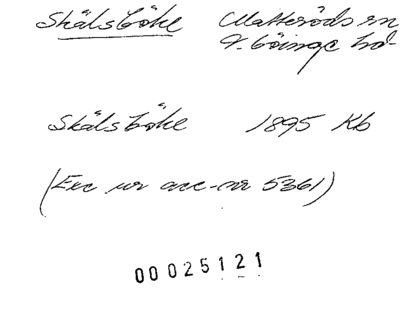 Skälsböke Matteröds sn
V. Göinge hd
Skälsböke 1895 Kb
(Exc ur acc-nr 5361)
00025121